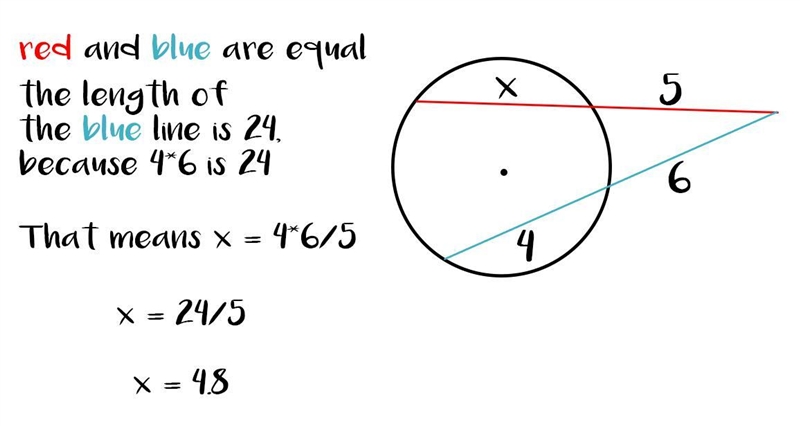 red and blue are equal
the length of
the blue line is 24,
because 4*6 is 24
That means x = 4*6/5
x = 24/5
x = 4.8
x
5
6
4